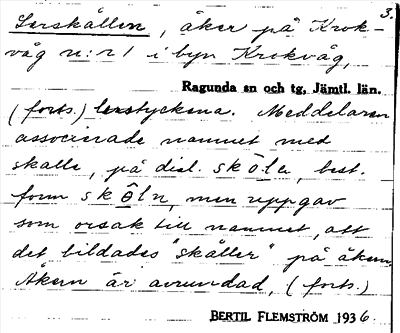 3.
Lerskållen, åker på Krok-
våg n:r 1 i byn Krokvåg,
Ragunda sn och tg, Jämtl. län.
(forts.) lerstyckena. Meddelaren
associerade namnet med
skalle, på dial. skôle, best.
form skôln, men uppgav
som orsak till namnet, att
det bildades "skåller" på åkern.
Åkern är avrundad, (forts.)
BERTIL FLEMSTRÖM 1936.